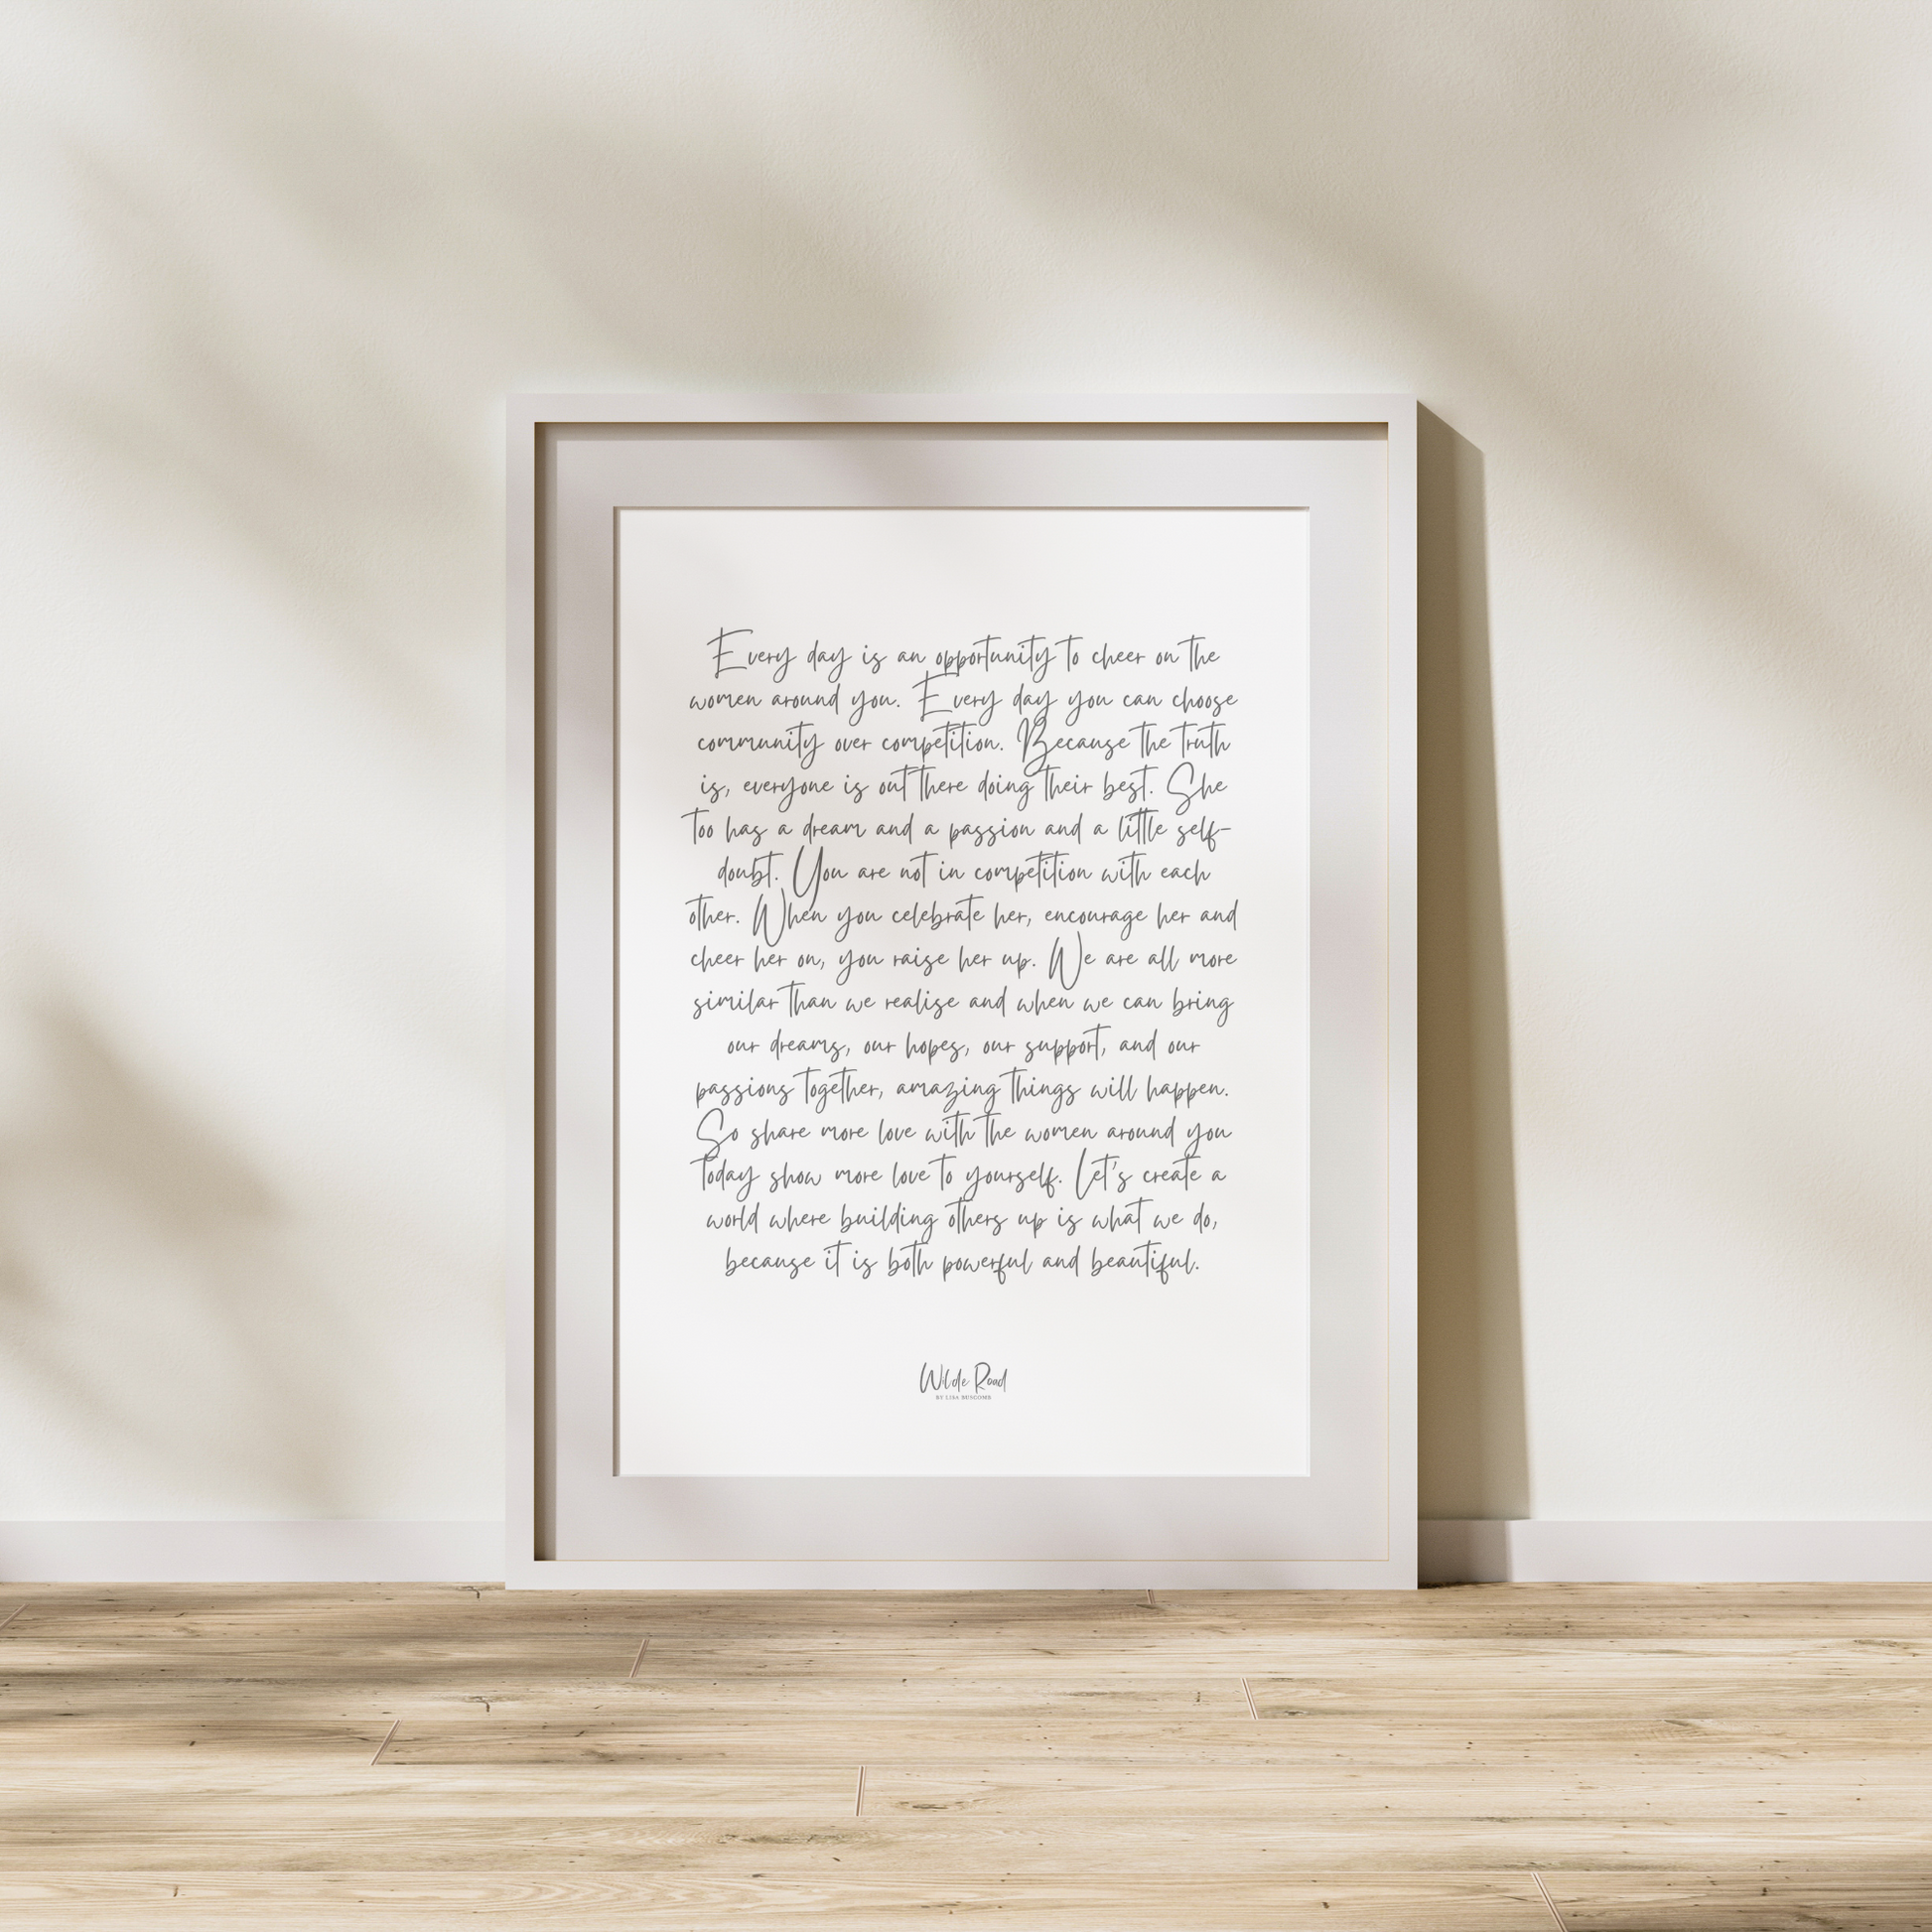 Every day is an opportunity to cheer on the
women around you. Every day you can choose
community over competition. Because the truth
is, everyone is out there doing their best. She
too has a dream and a passion and a little self-
doubt. You are not in competition with each
other. When you celebrate her, encourage her and
cheer her on, you raise her up. We are all more
similar than we realise and when we can bring
our dreams, our hopes, our support, and our
passions together, amazing things will happen.
So share more love with the women around you
today show more love to yourself. Let's create a
world where building others up is what we do,
because it is both powerful and beautiful.
Wilde Road
BY LISA BUSCOMB